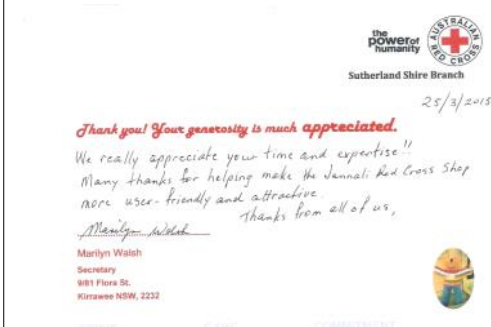 the
power of
humanity
AUSTRALIAN
RED CROSS
Sutherland Shire Branch
25/3/2015
Thank you! Your generosity is much appreciated.
We really appreciate your time and expertise!!
Many thanks for helping make the Jannali Red Cross Shop
more user-friendly and attractive.
Thanks from all of us,
Marilyn Walsh
Marilyn Walsh
Secretary
9/81 Flora St.
Kirrawee NSW, 2232